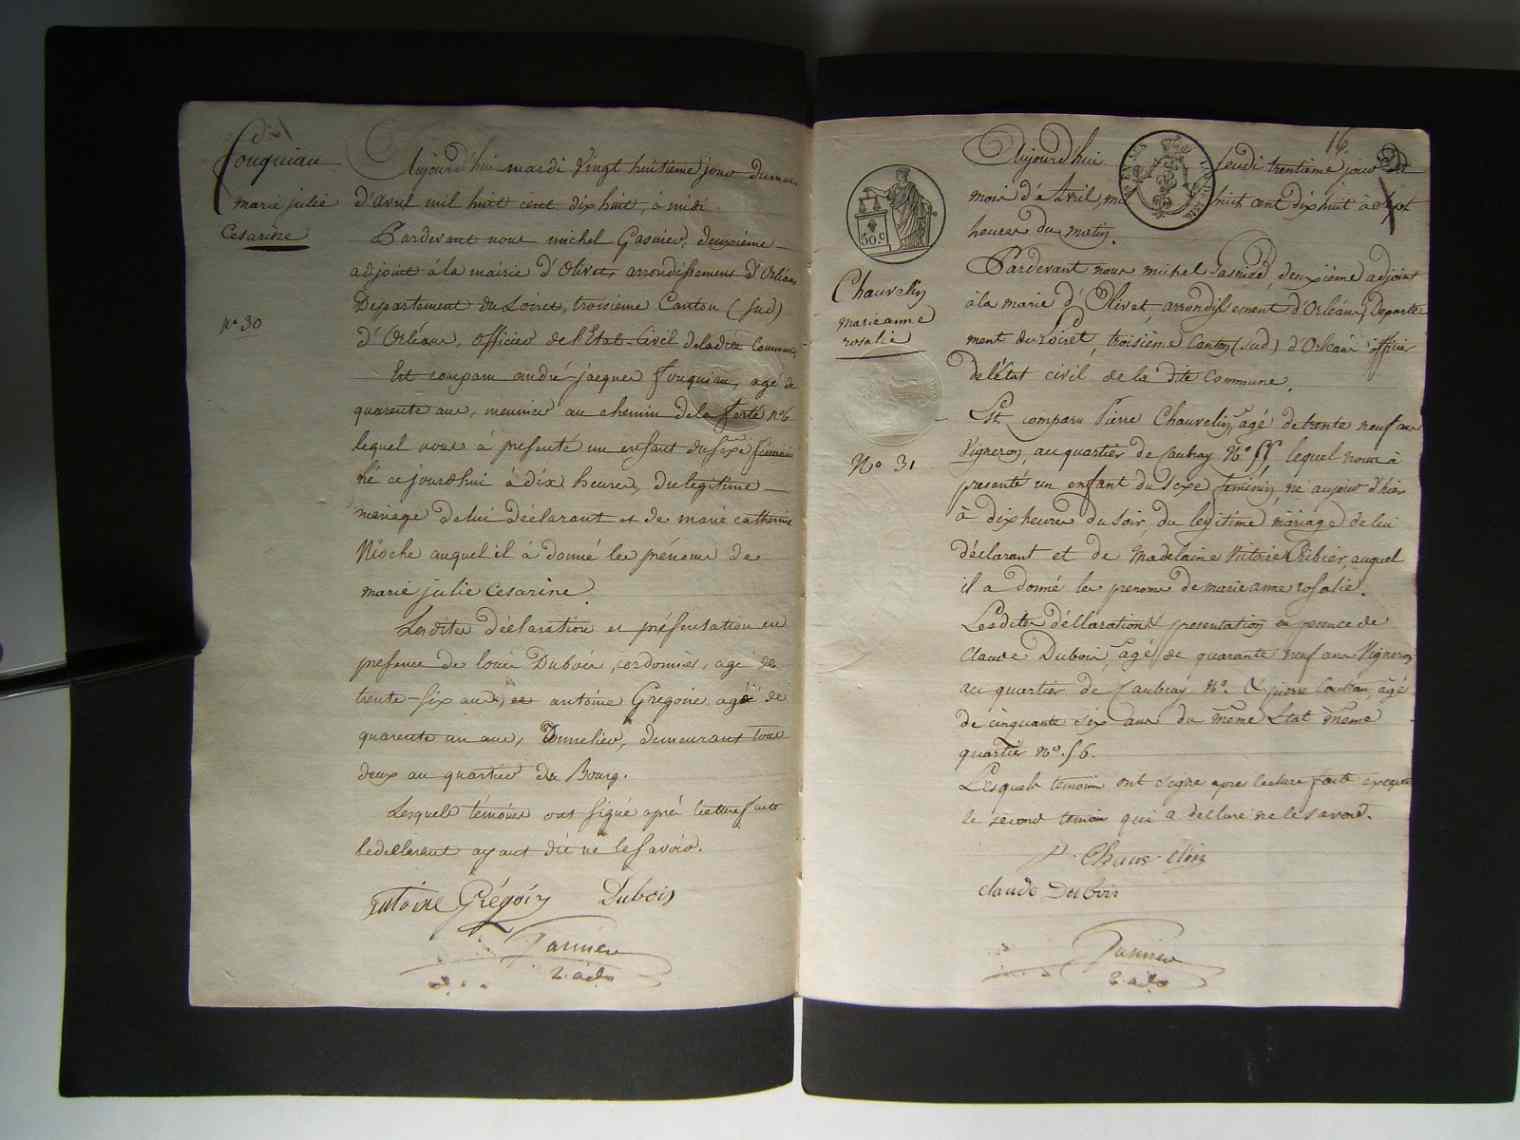 Fouquiau
marie julie
Cesarine
N° 30
Aujourd'hui mardi Vingt huitieme jour du mois
d'Avril mil huit cent dix huit, à midi
Pardevant nous michel Gasnier, deuxième
adjoint à la mairie d'Olivet, arrondissement d'Orléans
Departement du Loiret, troisième Canton (sud)
d'Orléans, officier de l'Etat-Civil de ladite Commune
Est comparu andré-jacques Fouquiau, agé de
quarente ans, meunier au chemin de la ferté n°6
lequel nous à presenté un enfant du sexe féminin
né ce jourd'hui à dix heures, du legitime
mariage de lui déclarant et de marie catherine
Nioche auquel il à donné les prénoms de
marie julie Cesarine.
Lesdites déclaration et présentation en
presence de louis Dubois, cordonnier, agé de
trente-six ans, et antoine Gregoire agé de
quarente un ans, Tonnelier, demeurant tous
deux au quartier du Bourg.
Lesquels témoins ont signé après lecture faite
le déclarant ayant dit ne le savoir.
antoine Grégoire Dubois
Gasnier
2. adj.
16.
Aujourd'hui Jeudi trentième jour du
mois d'Avril mil huit cent dix huit à sept
heures du matin.
50 c
Chauvelin
marie anne
rosalie
N° 31
Pardevant nous michel Gasnier, deuxième adjoint
à la marie d'Olivet, arrondissement d'Orléans, Departe
ment du Loiret, troisième Canton (sud) d'Orléans officier
de l'état civil de la dite Commune.
Est comparu Pierre Chauvelin, agé de trente neuf ans
Vigneron, au quartier de Caubray N° 55 lequel nous à
presenté un enfant du sexe feminin, né aujour d'hier
à dix heures du soir, du legitime mariage de lui
déclarant et de Madelaine Victoire Ribier, auquel
il a donné les prenoms de marie anne rosalie.
Lesdites déclaration & presentation en presence de
Claude Dubois, agé de quarante neuf ans Vigneron
au quartier de Caubray N°. & pierre agé
de cinquante six ans du même Etat même
quartier N°. 56.
Lesquels temoins ont signé apres lecture faite excepté
le second temoin qui a déclaré ne le savoir.
P. Chauvelin
claude Dubois
Gasnier
2. adj.